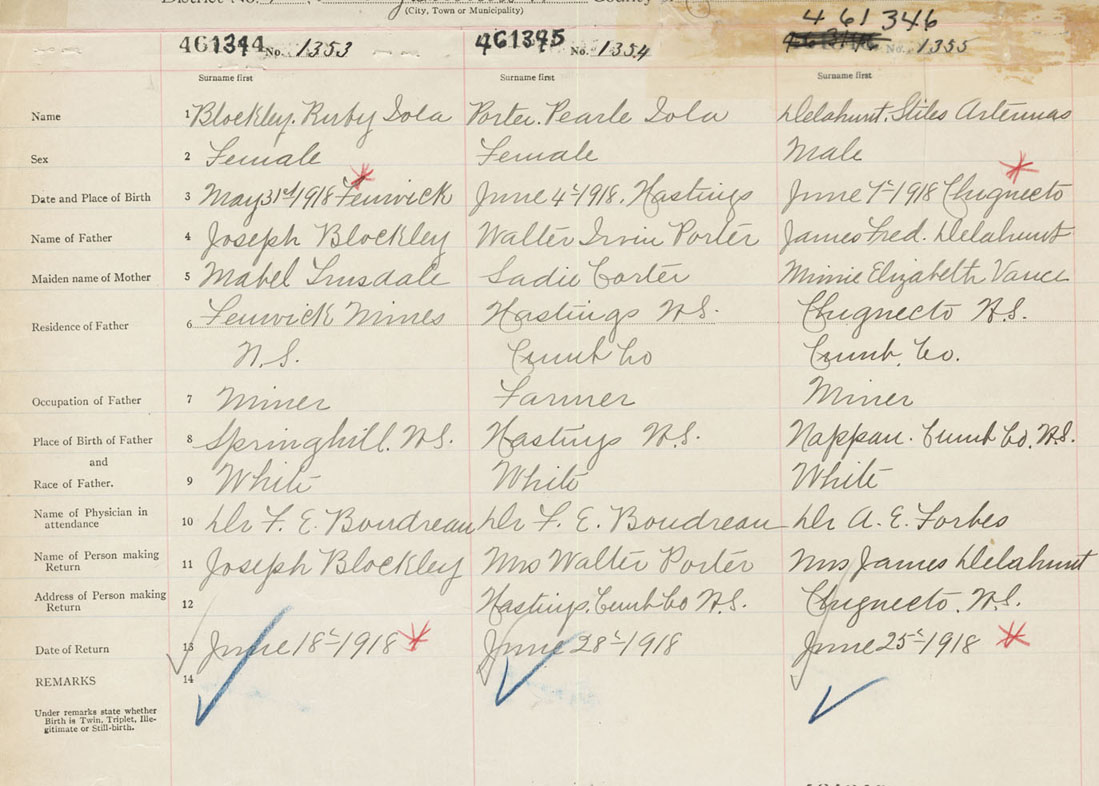 District No.
County
(City, Town or Municipality)
461344 No. 1353
461345 No. 1354
461346 No. 1355
Surname first
Surname first
Surname first
Name 1 Blockley. Ruby Iola
Porter. Pearle Iola
Delahunt. Stiles Artemas
Sex 2 Female
Female
Male
Date and Place of Birth 3 May 31st 1918 Fenwick
June 4th 1918. Hastings
June 1st 1918 Chignecto
Name of Father 4 Joseph Blockley
Walter Irvin Porter
James Fred. Delahunt
Maiden name of Mother 5 Mabel Truesdale
Sadie Carter
Minnie Elizabeth Vance
Residence of Father 6 Fenwick Mines
Hastings N.S.
Chignecto N.S.
N.S.
Cumb Co
Cumb. Co.
Occupation of Father 7 Miner
Farmer
Miner
Place of Birth of Father 8 Springhill. N.S.
Hastings N.S.
Nappan. Cumb Co. N.S.
and
Race of Father. 9 White
White
White
Name of Physician in
attendance 10 Dr F. E. Boudreau
Dr F. E. Boudreau
Dr A. E. Forbes
Name of Person making
Return 11 Joseph Blockley
Mrs Walter Porter
Mrs James Delahunt
Address of Person making
Return 12
Hastings, Cumb Co N.S.
Chignecto. N.S.
Date of Return 13 June 18th 1918
June 28th 1918
June 25th 1918
REMARKS 14
Under remarks state whether
Birth is Twin, Triplet, Ille-
gitimate or Still-birth.